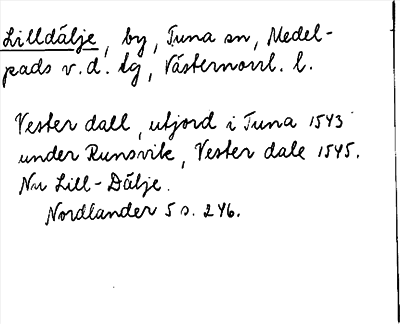 Lilldälje, by, Tuna sn, Medel-
pads v. d. tg, Västernorrl. l.
Vester dall, utjord i Tuna 1543
under Runsvik, Vester dale 1545.
Nu Lill-Dälje.
Nordlander 5 s. 246.